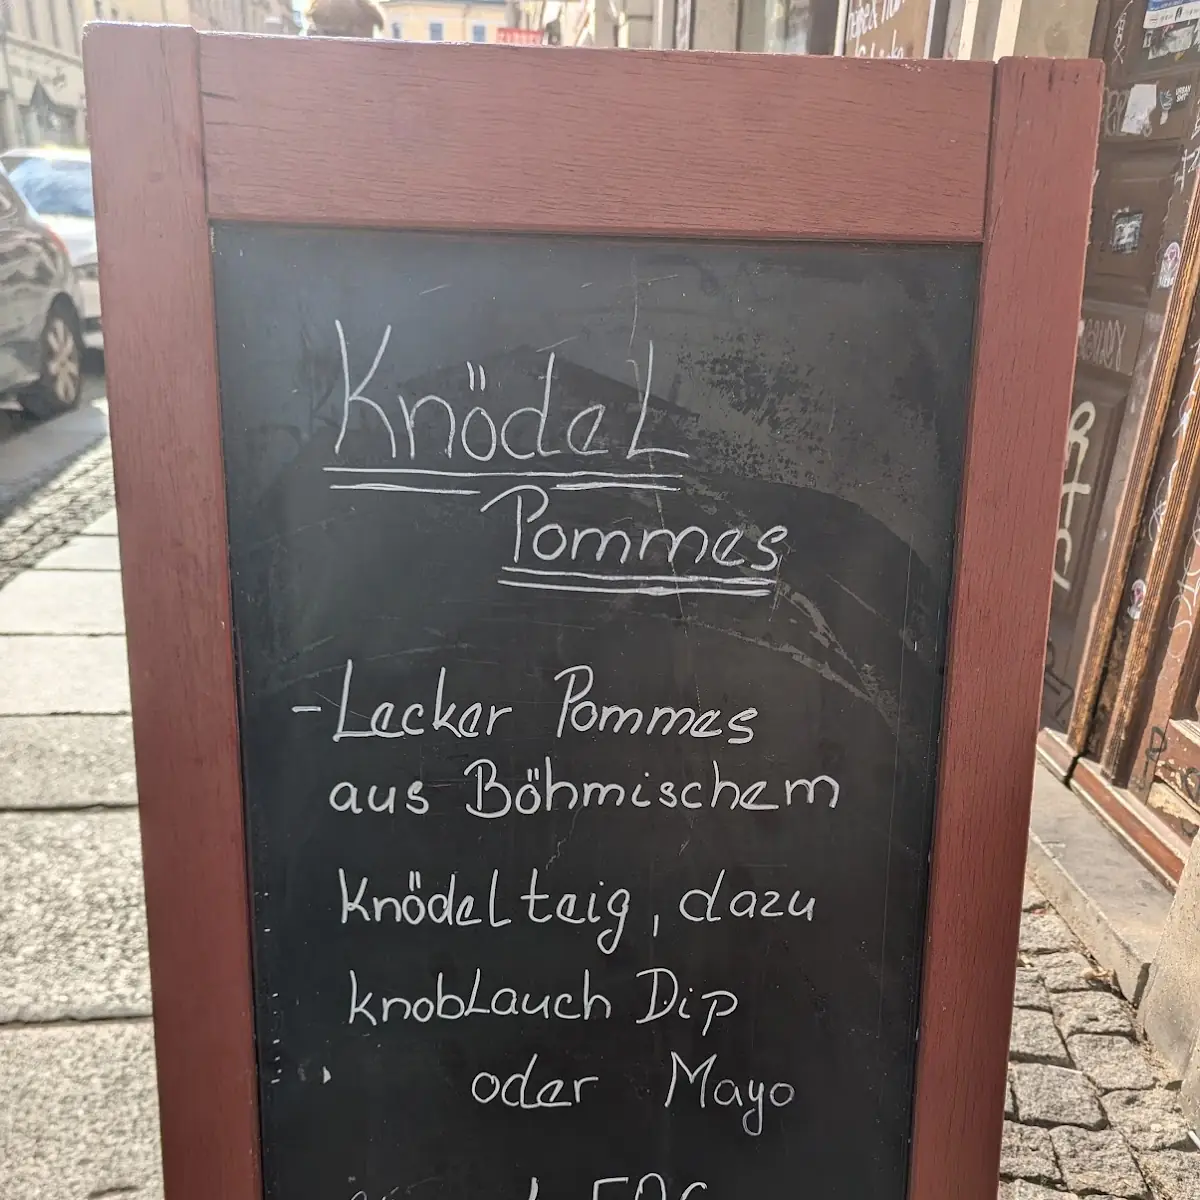 Knödel
Pommes
- Lecker Pommes
aus Böhmischem
Knödelteig, dazu
Knoblauch Dip
oder Mayo